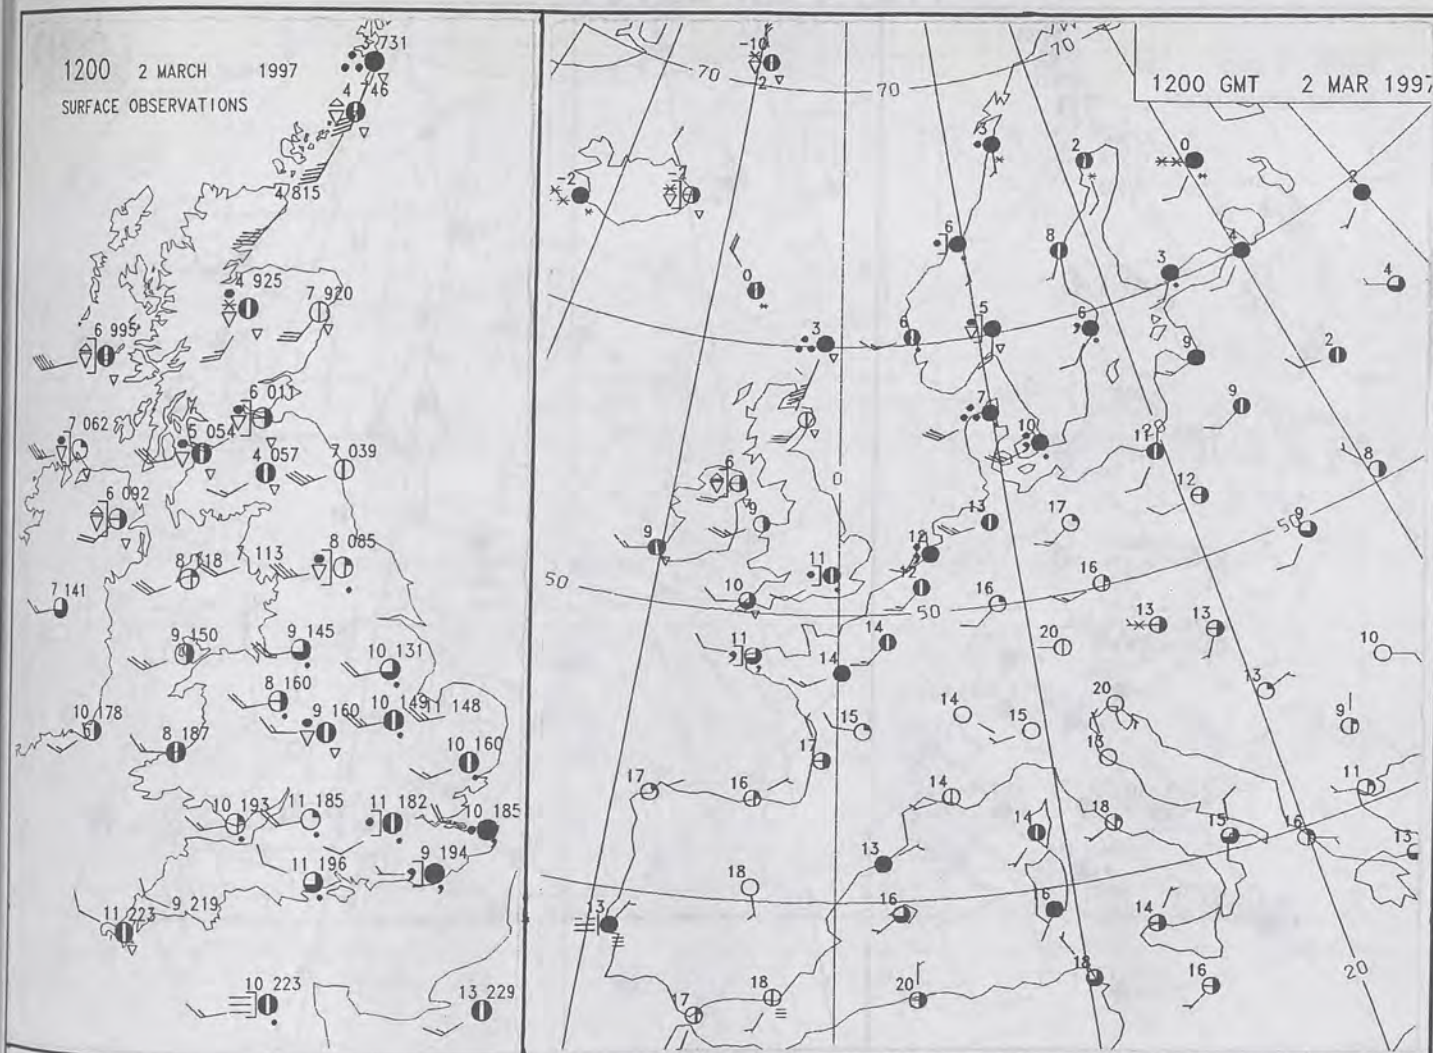 1200 2 MARCH 1997
SURFACE OBSERVATIONS
731
4 746
4 815
4 925
7 920
6 995
6 011
7 062
5 054
4 057
7 039
6 092
8 085
8 118
7 113
7 141
9 150
9 145
10 131
8 160
10 178
9 160
10 149
11 148
8 187
10 160
10 193
11 185
11 182
10 185
11 196
9 194
9 219
11 223
10 223
13 229
1200 GMT 2 MAR 1997
-10
70
70
70
2
3
2
0
-2
-2
6
8
4
3
4
0
3
6
5
6
9
2
7
10
9
11
20
8
6
0
12
9
9
13
17
50
9
12
11
16
50
10
12
16
50
13
13
14
20
10
11
14
13
14
15
20
9
15
17
13
17
16
14
11
14
18
15
16
13
13
18
16
6
14
13
18
16
20
18
20
17